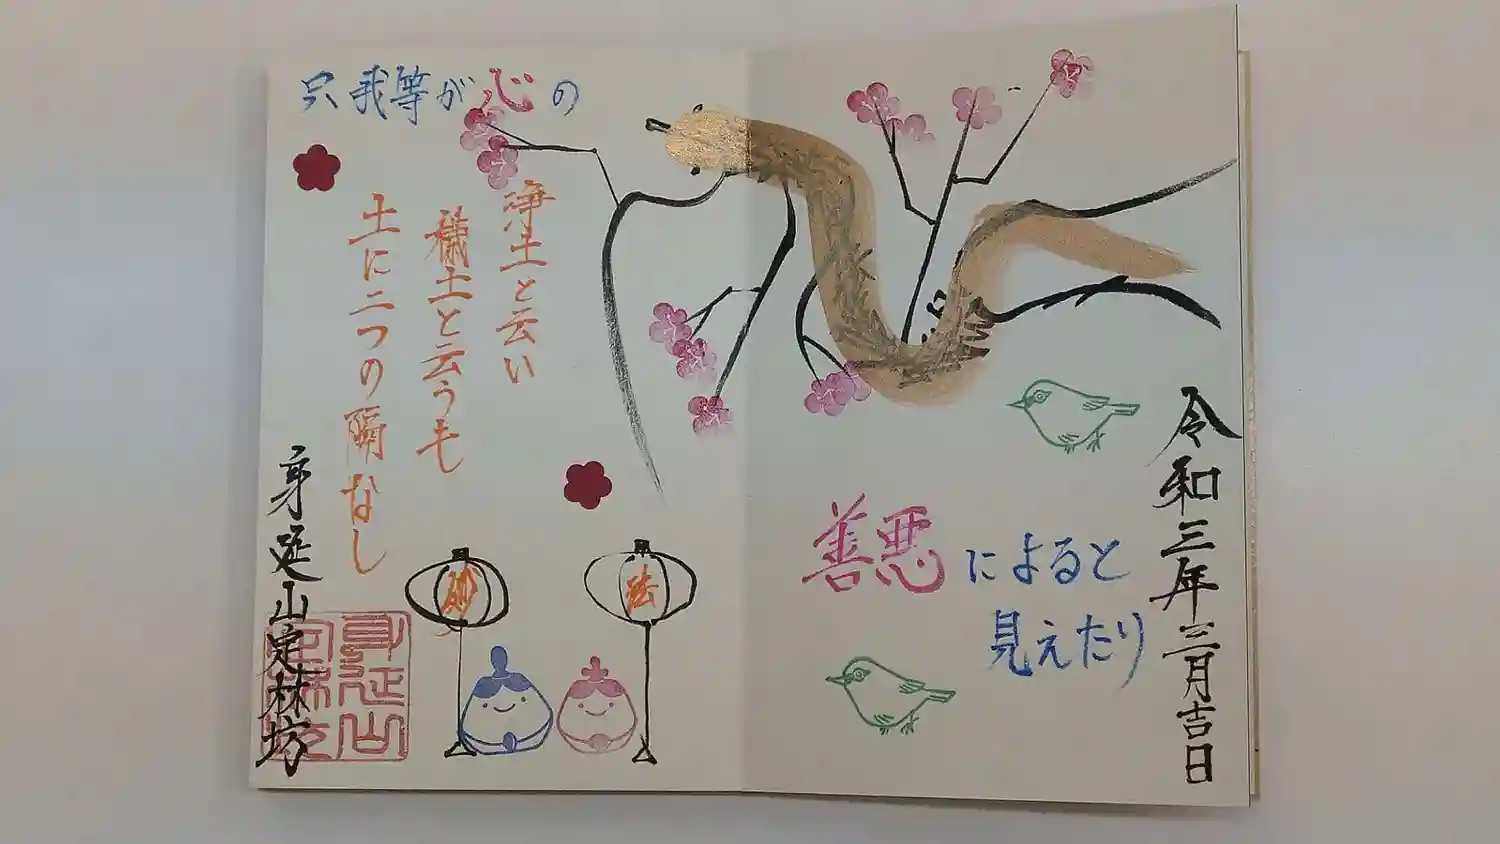 令和三年三月吉日
浄土と云い
穢土と云うも
土に二つの隔なし
只我等が心の
善悪によると
見えたり
妙
法
身延山定林坊
身延山
定林坊